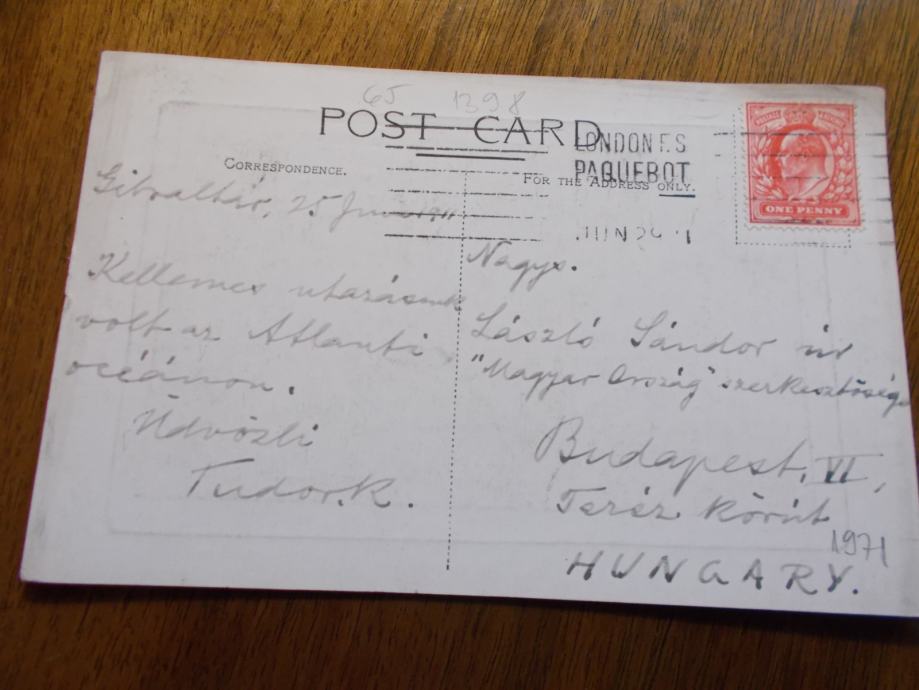 65 1398
POST CARD
LONDON F.S
PAQUEBOT
JUN 29 11
CORRESPONDENCE.
FOR THE ADDRESS ONLY.
POSTAGE
ONE PENNY
Gibraltár, 25 Jun 1911
Kellemes utazásunk
volt az Atlanti
océánon.
Üdvözli
Tudor.K.
Nagys.
László Sándor úr
"Magyar Ország" szerkesztőség
Budapest, VI,
Teréz körút
1971
HUNGARY.